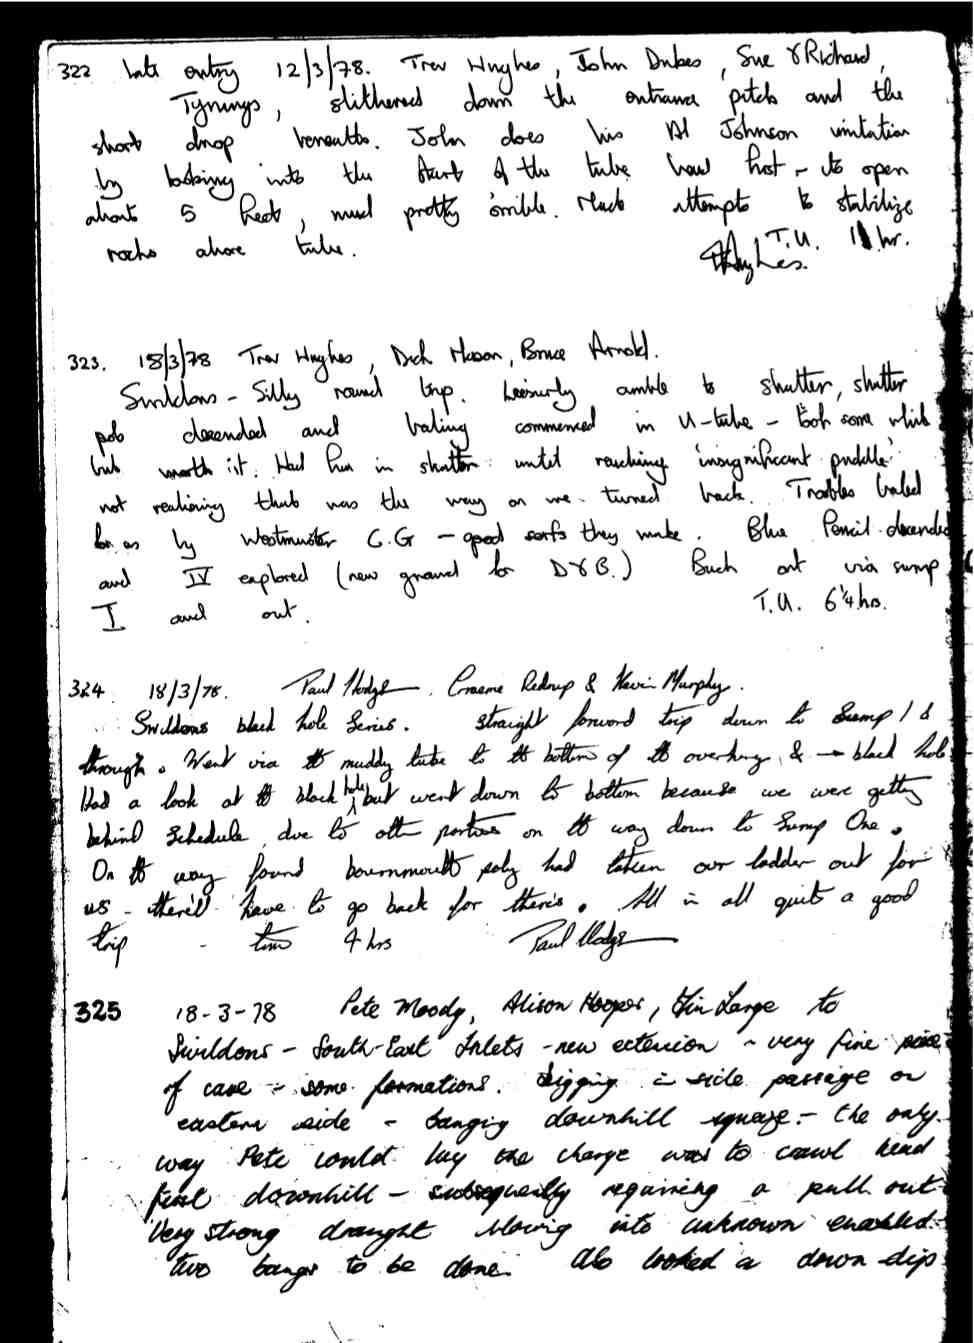 322 Late entry 12/3/78. Trev Hughes, John Dukes, Sue & Richard,
Tynings, slithered down the entrance pitch and the
short drop beneath. John does his Al Johnson imitation
by looking into the start of the tube head first - its open
about 5 feet, mud pretty 'orrible. Made attempts to stabilize
rocks above tube. T.U. 1 hr.
THughes.
323. 18/3/78 Trev Hughes, Dick Mason, Bruce Arnold.
Swildons - Silly round trip. Leisurly amble to shatter, shatter
pot decended and bailing commenced in U-tube - took some while
but worth it. Had fun in shatter until reaching 'insignificant puddle'
not realising that was the way on we turned back. Troubles bailed
for us by Westminster C.G - good sorts they make. Blue Pencil decended
and IV explored (new ground for D & B.) Back out via sump
I and out. T.U. 6¼ hrs.
324 18/3/78. Paul Hodge, Graeme Redrup & Kevin Murphy.
Swildons black hole Series. Straight forward trip down to Sump 1 &
through. Went via tt muddy tube to tt bottom of tt overhang, & → black hole
Had a look at tt black hole but went down to bottom because we were getting
behind schedule, due to other parties on tt way down to Sump One.
On tt way found bournmouth poly had taken our ladder out for
us - there'll have to go back for there's. All in all quite a good
trip - time 4 hrs Paul Hodge
325 18-3-78 Pete Moody, Alison Hooper, Tim Large to
Swildons - South-East Inlets - new extension - very fine piece
of cave - some formations. Digging in side passage on
eastern side - banging downhill squeeze - the only
way Pete could lay the charge was to crawl head
first downhill - subsequently requiring a pull out.
Very strong draught blowing into unknown enabled
two bangs to be done. Also looked a down-dip